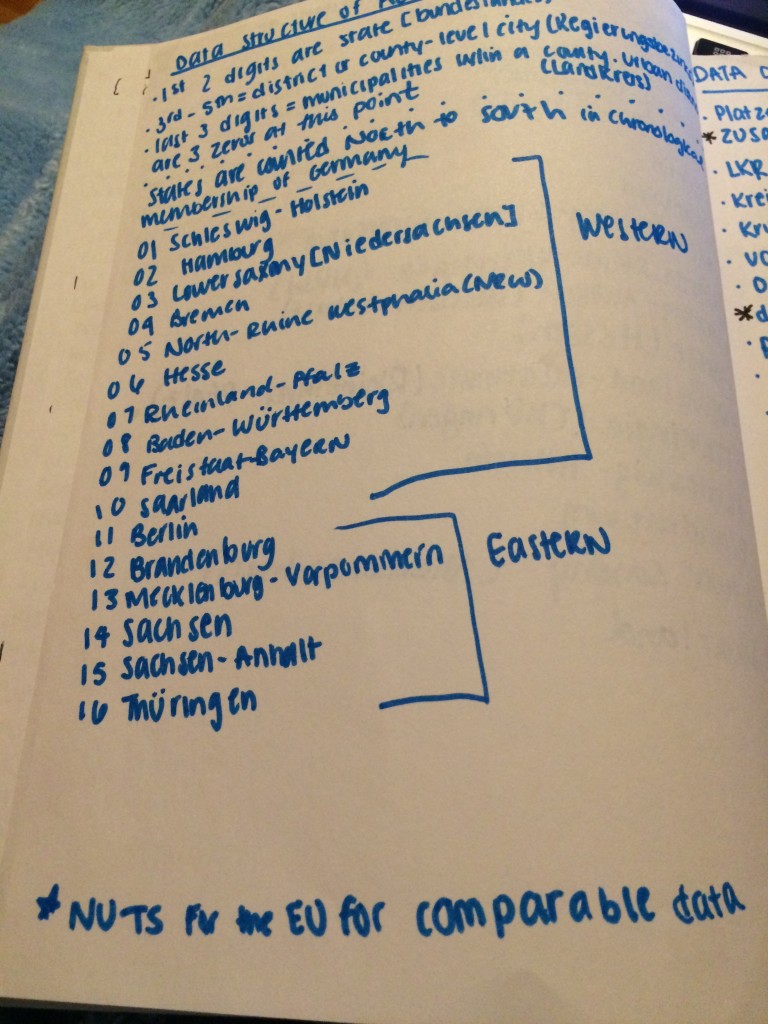 Data Structure of
• 1st 2 digits are state [bundesländer]
• 3rd - 5th = district or county-level city (Regierungsbezirk
• last 3 digits = municipalities w/in a county. urban
(Landkreis)
are 3 zeros at this point
States are counted North to South in chronological
membership of Germany
01 Schleswig-Holstein
02 Hamburg
03 Lower Saxony [Niedersachsen]
04 Bremen
05 North-Rhine Westphalia (NRW)
06 Hesse
07 Rheinland-Pfalz
08 Baden-Württemberg
09 Freistaat-Bayern
10 Saarland
WESTERN
11 Berlin
12 Brandenburg
13 Mecklenburg-Vorpommern
14 Sachsen
15 Sachsen-Anhalt
16 Thüringen
EASTERN
* NUTS for the EU for comparable data
DATA
• Platz
* ZUSA
• LKR
• Krei
• Kr